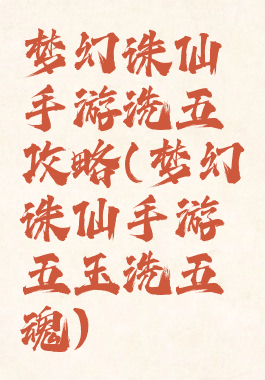 梦幻诛仙
手游洗五
攻略(梦幻
诛仙手游
五玉洗五
魂)